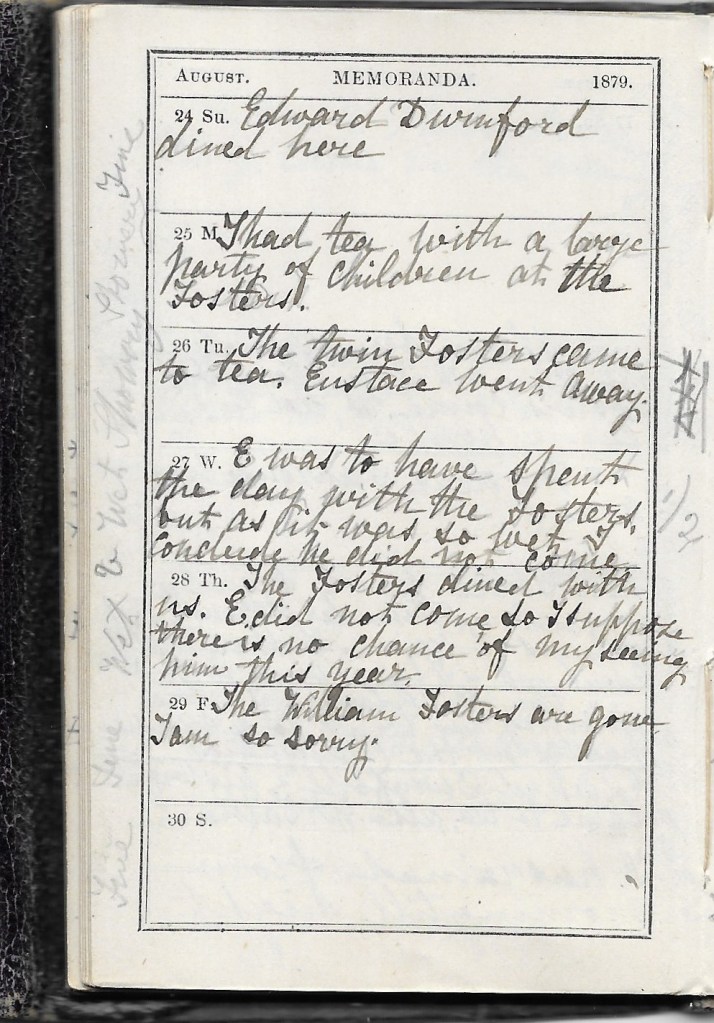 AUGUST. MEMORANDA. 1879.
24 Su. Edward Durnford
dined here
25 M. I had tea with a large
party of children at the
Fosters.
26 Tu. The twin Fosters came
to tea. Eustace went away.
27 W. E was to have spent
the day with the Fosters,
but as it was so wet, I
conclude he did not come
28 Th. The Fosters dined with
us. E did not come so I suppose
there is no chance of my seeing
him this year.
29 F. The William Fosters are gone
I am so sorry.
30 S.
Fine
Showery
Showery
Wet
Wet
Fine
Fine